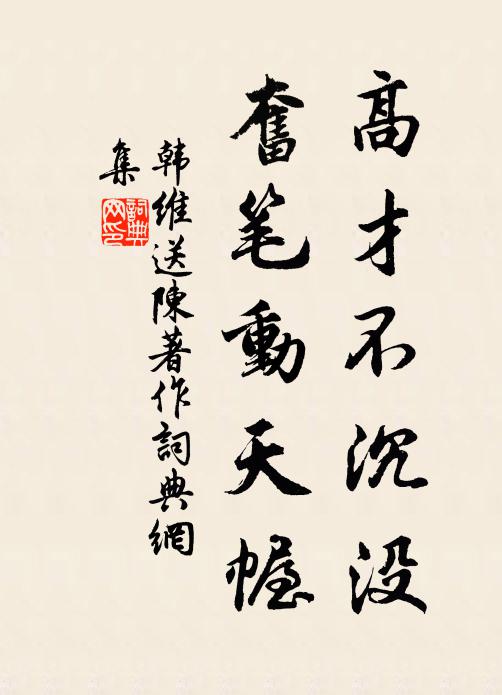 高才不沉没
奮笔動天幄
韩維送陳著作詞典網
集
詞典
网印